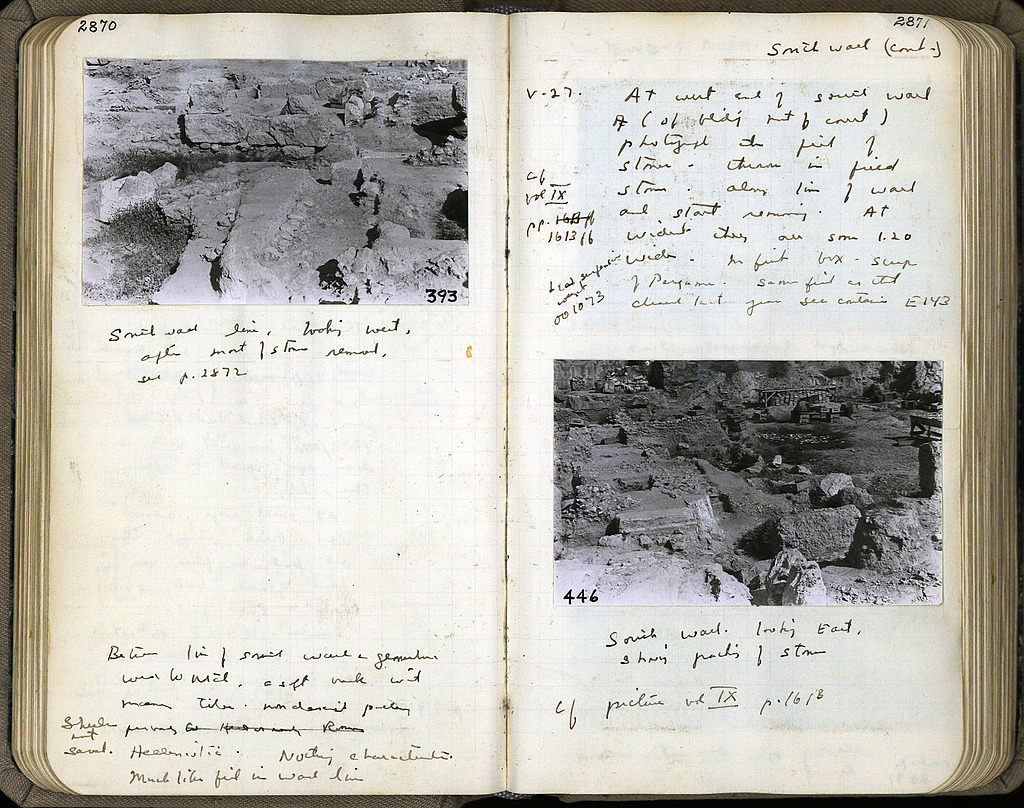 2870
393
South wall line, looking west,
after most of stone removed,
see p. 2872
Between line of south wall &
wall to
tiles. nondescript pottery
Sherds
not
saved.
Hellenistic. Nothing characteristic.
Much like fill in wall line
2871
South wall (cont-)
V-27. At west end of south wall
A (of bldg of court)
photograph the of
stones - thrown in field
stone. along line of wall
and start removing. At
widest they are some 1.20
wide. In first box - scrap
of Pergamene. Same fill as that
cleared last year see container E 143
cf
vol IX
pp.
1613 ff
446
South wall. looking East,
showing packing of stone
cf picture vol IX p. 1618